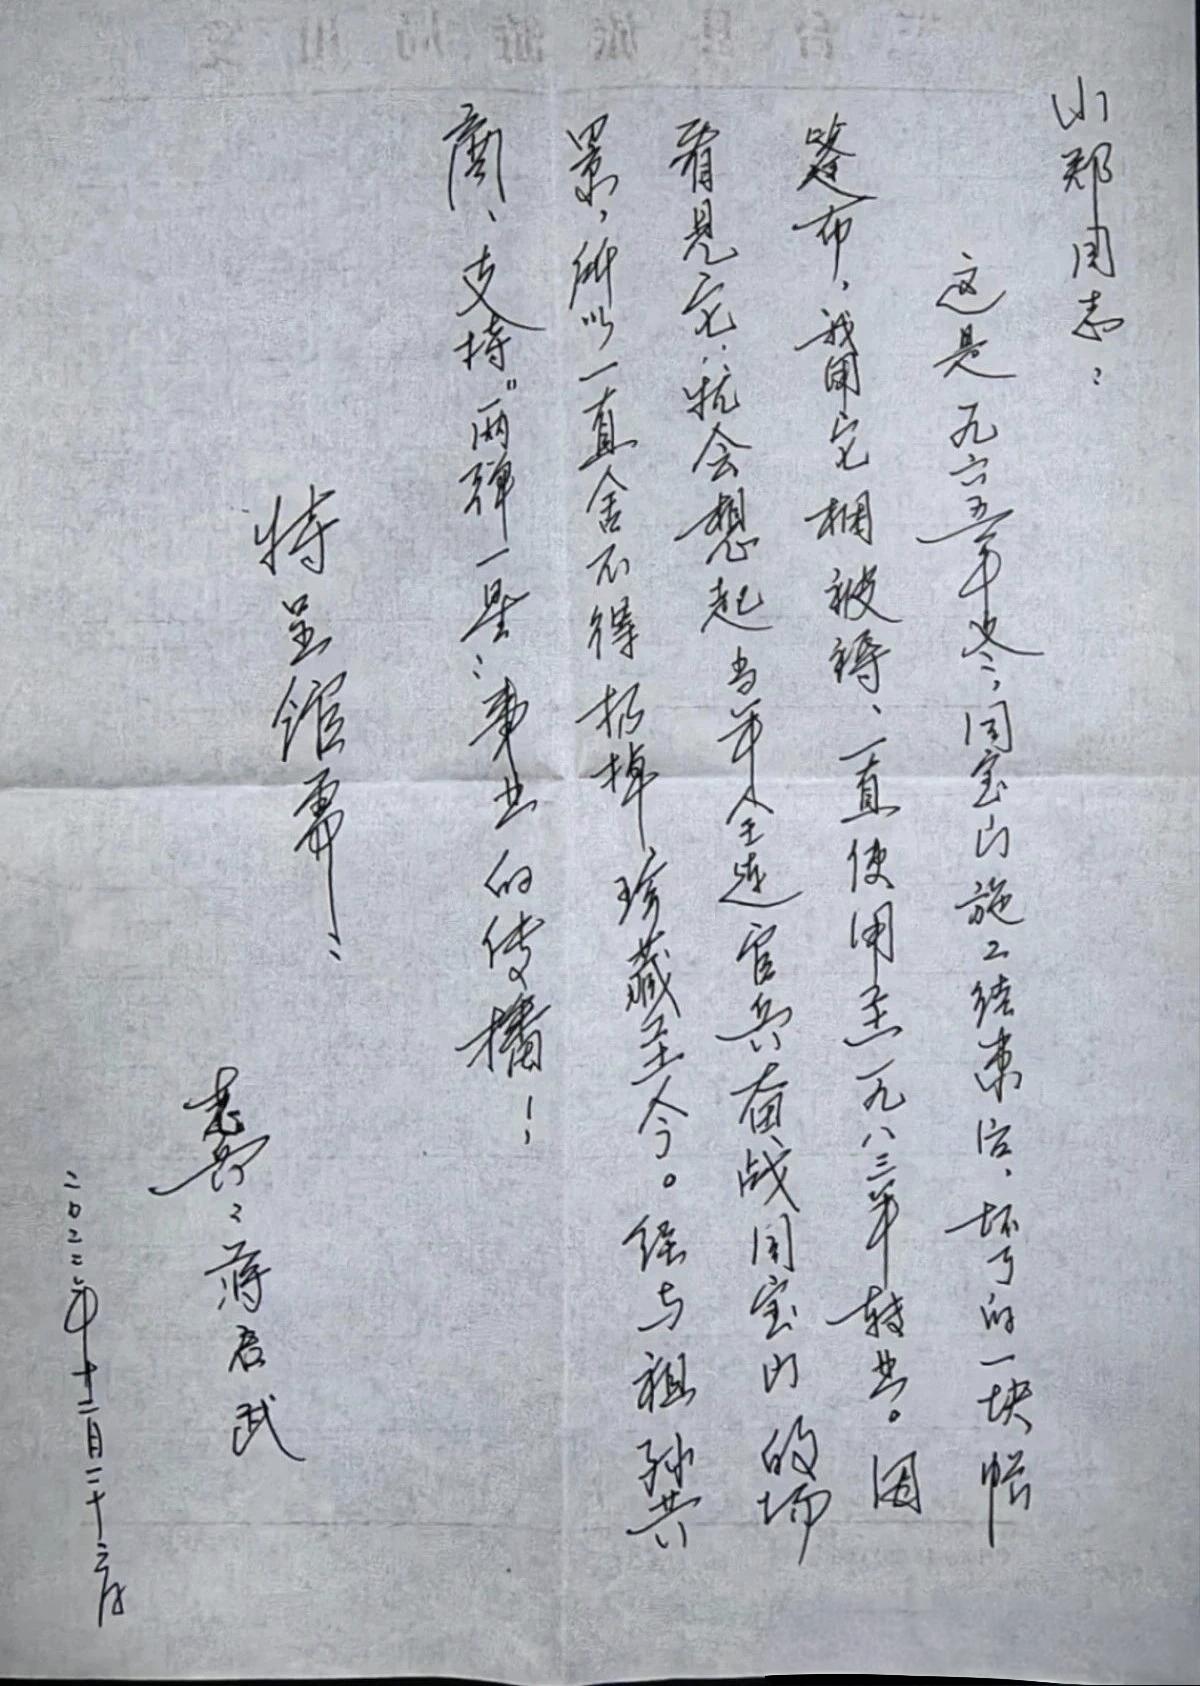 小郑同志：
这是一九六五年冬，国宝山施工结束后，坏了的一块帐
篷布，我用它捆被褥、一直使用至一九八三年转业。因
看见它，就会想起当年全连官兵奋战国宝山的场
景，所以一直舍不得扔掉，珍藏至今。经与祖孙共
商、支持“两弹一星”事业的传播！
特呈馆
老兵：蒋启武
二〇二二年十二月二十
台县旅游局用笺